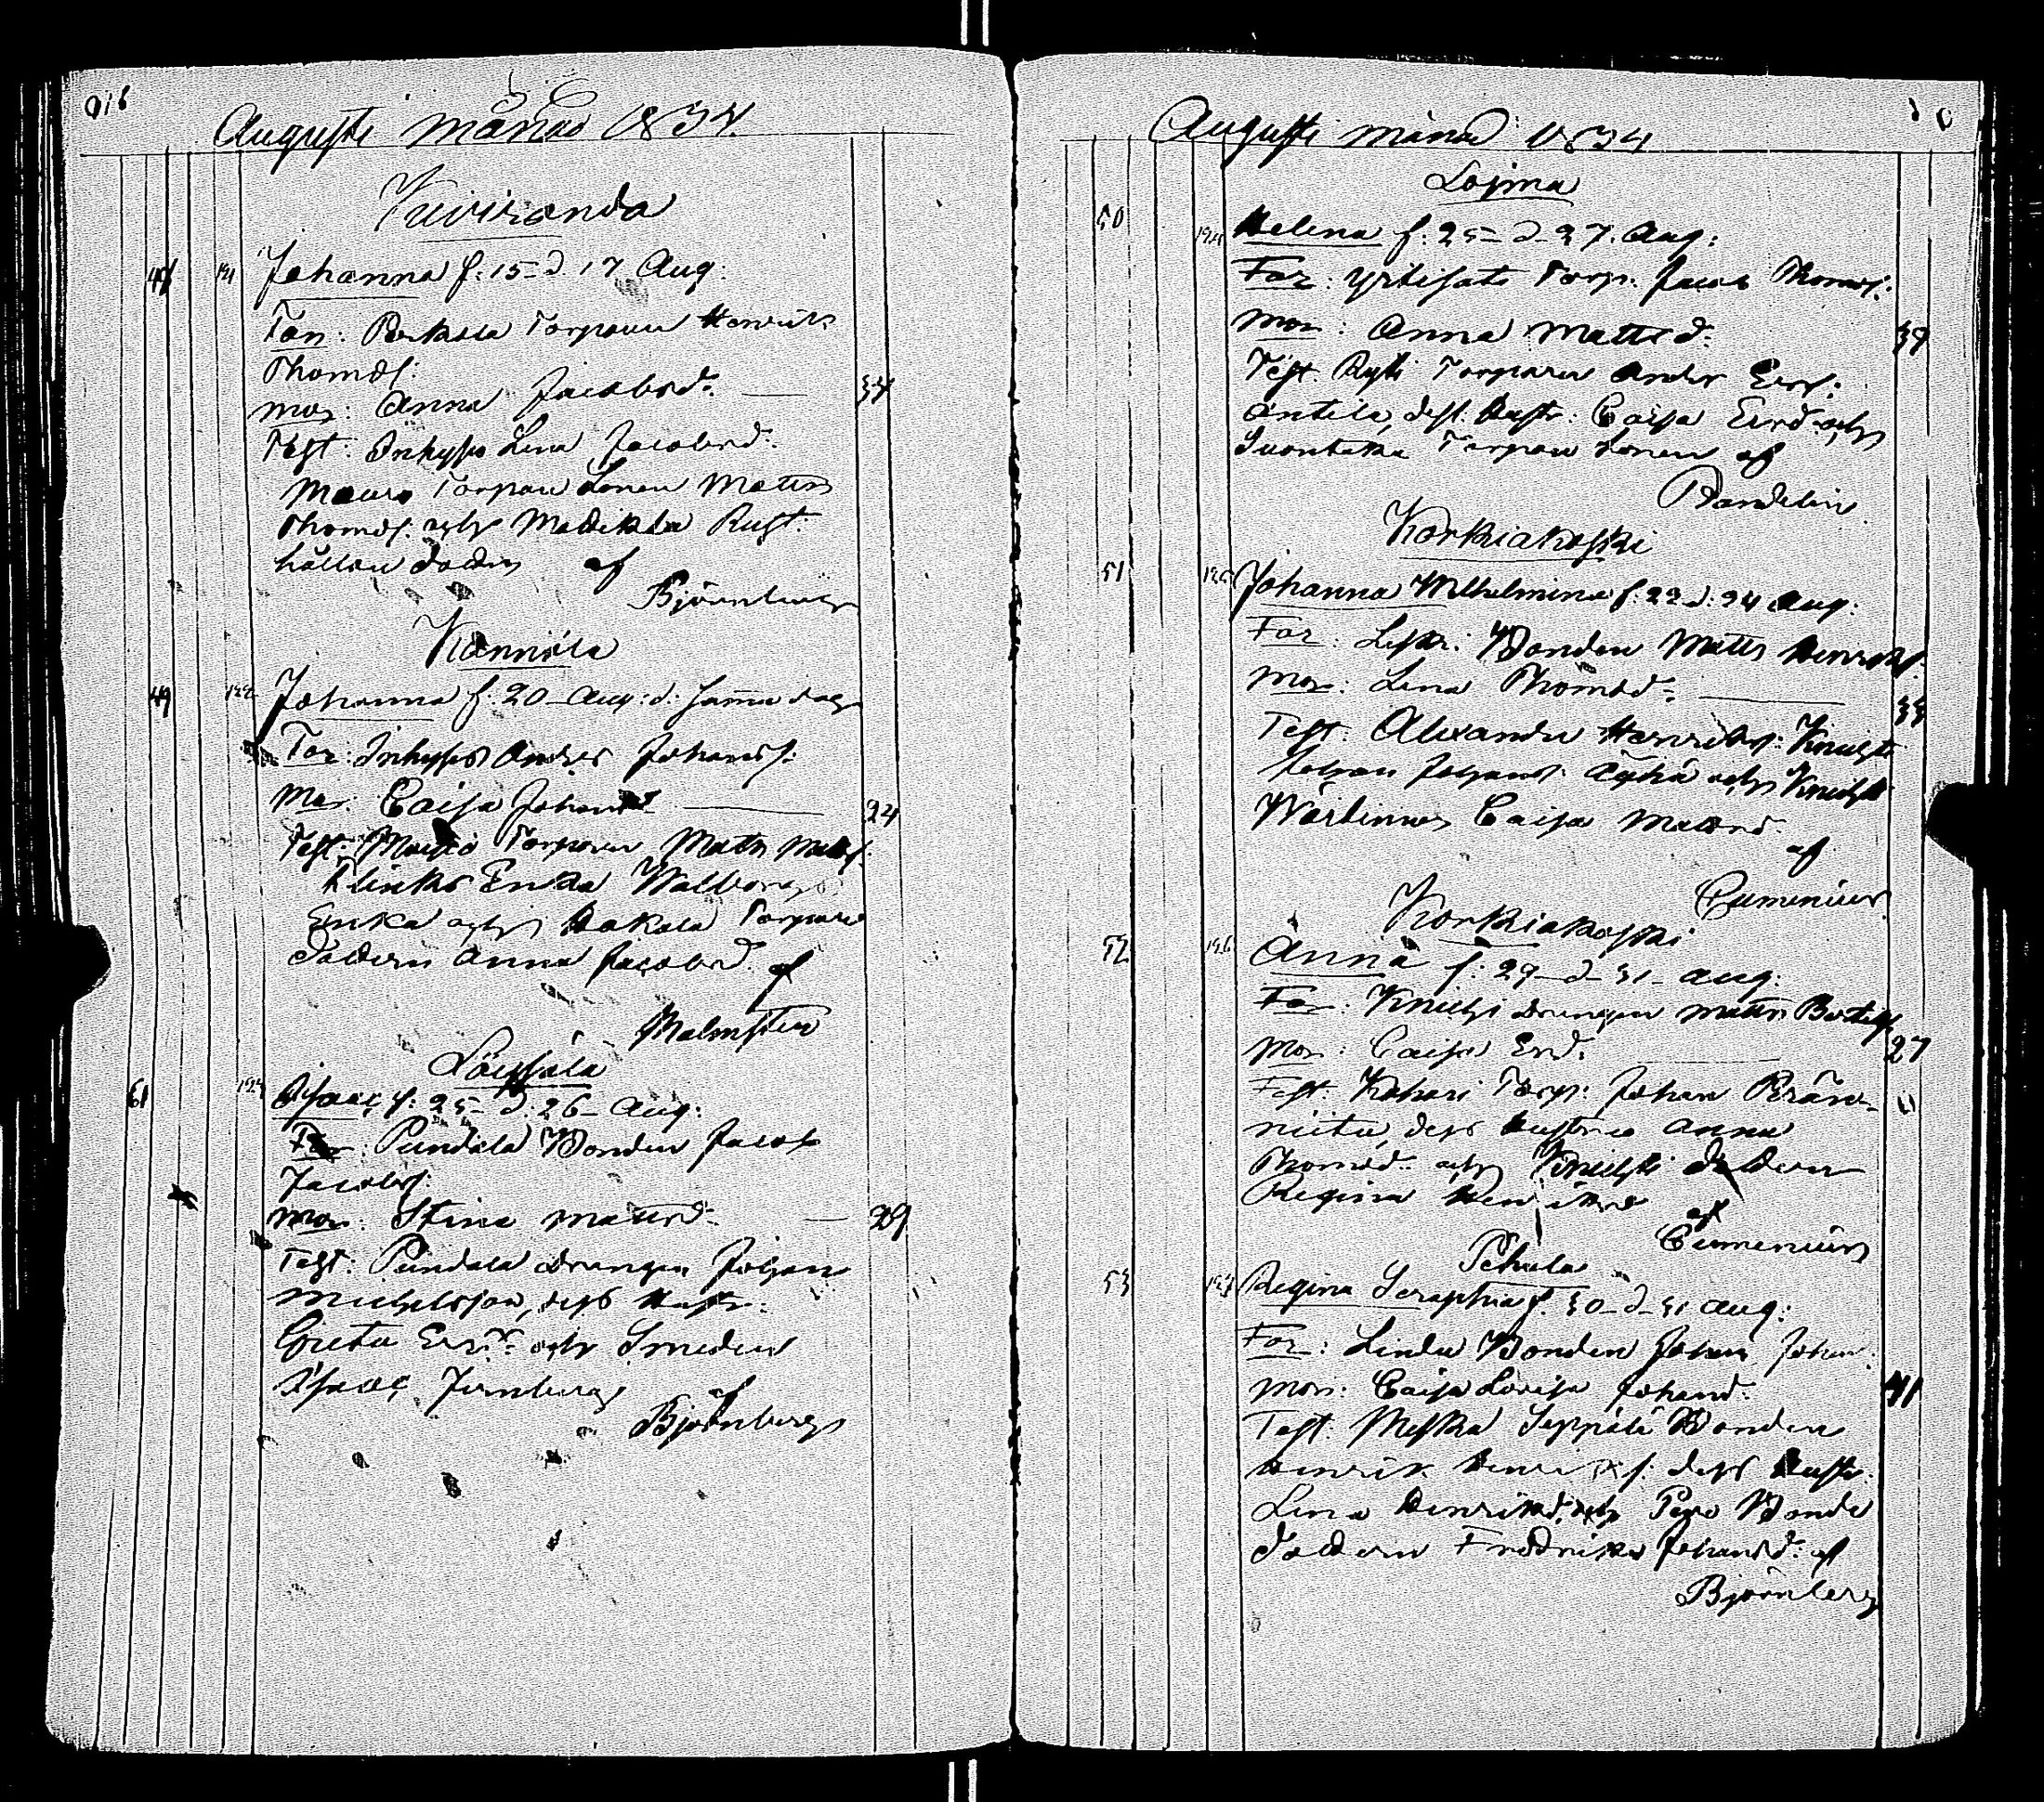 Augusti månad 1834.
Kuviranda
48 121 Johanna f: 15 d. 17 Aug:
Far: Perkola Torparen Henrik
Thomæs:
Mor: Anna Jacobsd: 34
Test: Inhyses Lena Jacobsd:
Torpare Sonen Matts
Thomæs: och Madikkla Rust-
hållare dottren af
Björnberg
Kannila
49 122 Johanna f. 20 Aug: d: samma dag
Far: Inhyses Anders Johanss:
Mor: Caisa Johansd 24
Test: Torparen Matts Matts:
Enka Walborg
Enka och Hakola Torpare
dottern Anna Jacobsd. af
Malmsten
61 123 Isaac f: 25 d. 26 Aug:
Far: Pundola Bonden Jacob
Jacobs:
Mor: Stina Mattsd: 29
Test: Pundola Drengen Johan
Michelsson, dess Hustr:
Greta Ersd: och Smeden
Isaac Jernberg af
Björnberg
Augusti månad 1834
Lojma
50 124 Helena f: 25 d. 27. Aug:
Far: Torp: Jacob Thomæs:
Mor: Anna Mattsd: 39
Test: Ryti Torparen Anders Ers:
Antila, dess Hustr: Caisa Ersd: och
Suontaka Torpare Sonen af
Bandelin
Korkiakoski
51 125 Johanna Wilhelmina f: 22 d: 24 Aug:
Far: Bonden Matts Henriks:
Mor: Lina Thomæd: 33
Test: Alexander Henriks: Knuuti
Johan Johans: Äyhö och Knuuti
Caisa Mattsd.
af
Cumenius
Korkiakoski
52 126 Anna f: 29 d 31 Aug:
Far: Drengen Matts Bertils:
Mor: Caisa Ersd: 27
Test: Kohari Torp: Johan Perän-
niitu, dess Hustru Anna
Thomæd: och dottern
Regina Henriksd af
Cumenius
Pehula
53 127 Regina Seraphia f. 30 d 31 Aug:
Far: Bonden Johan Johan:
Mor: Caisa Lovisa Johansd: 41
Test: Meska Seppälä Bonden
Henrik Henriks: dess Hustr:
Lena Henriksd, och Bonde
dottern Fredrika Johansd: af
Björnberg